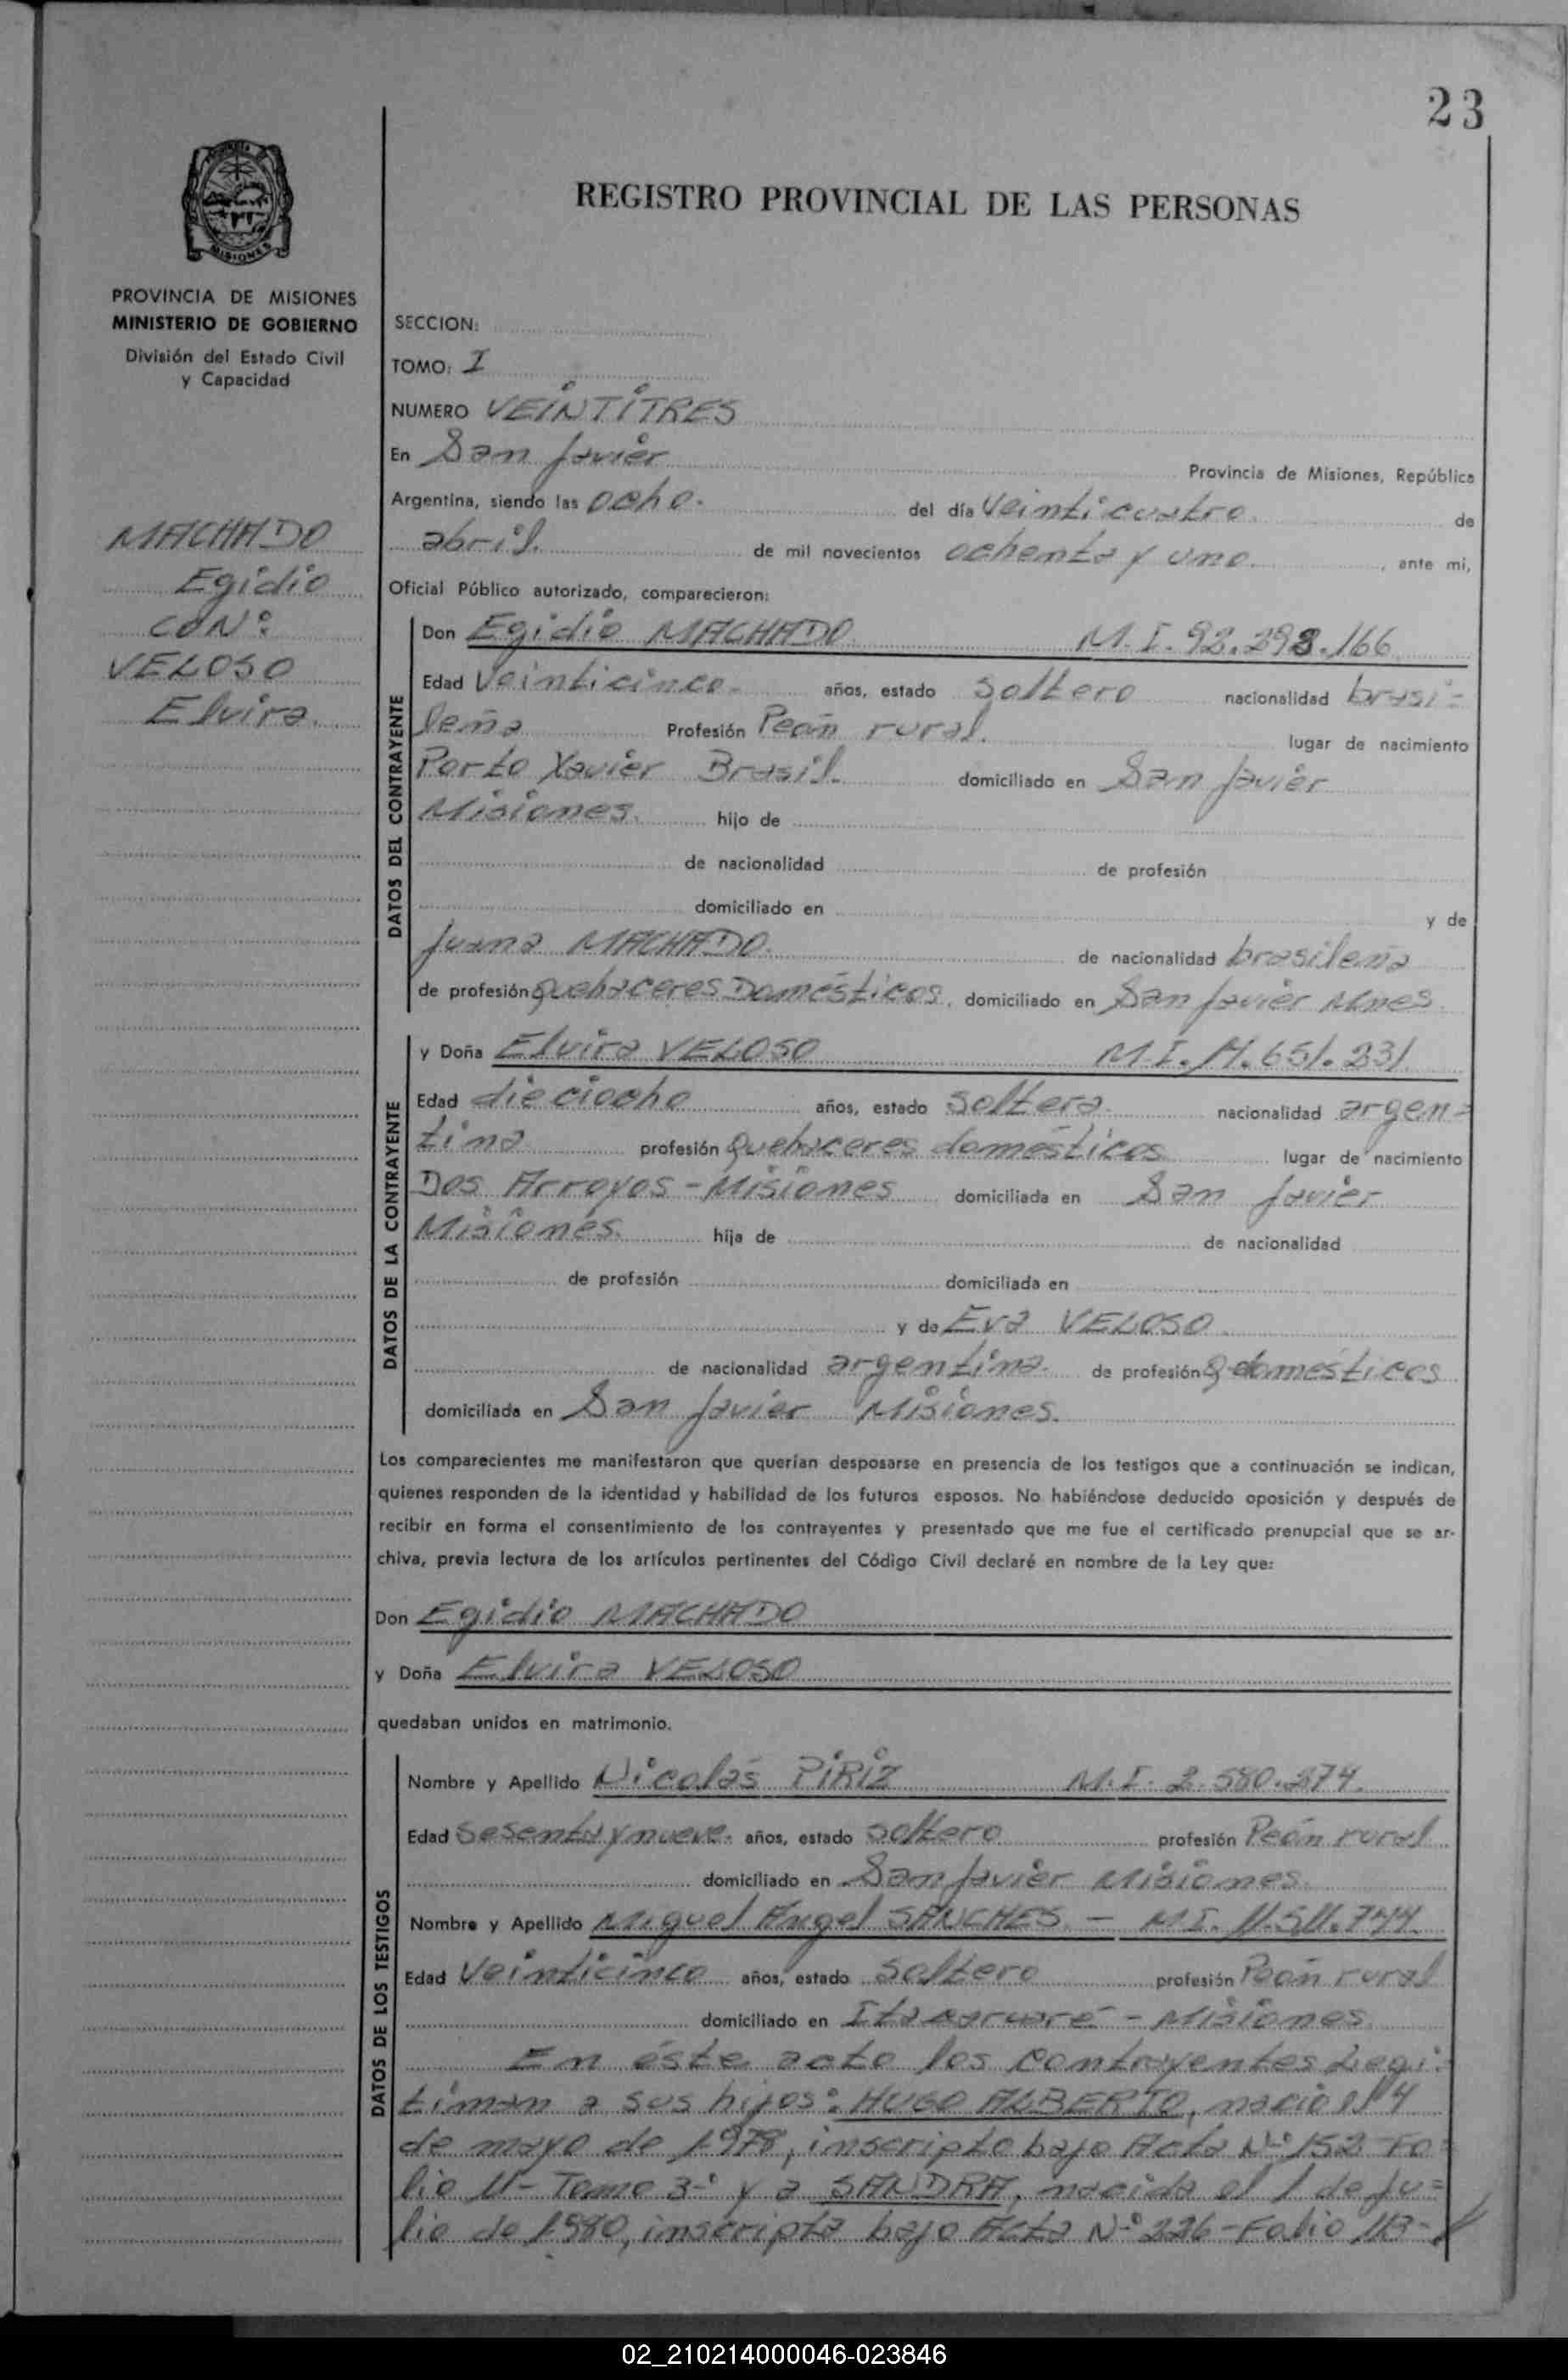 23
REGISTRO PROVINCIAL DE LAS PERSONAS
MISIONES
PROVINCIA DE MISIONES
MINISTERIO DE GOBIERNO
División del Estado Civil
y Capacidad
MACHADO
Egidio
CON:
VELOSO
Elvira.
SECCION:
TOMO: I
NUMERO VEINTITRES
En San Javier Provincia de Misiones, República
Argentina, siendo las ocho. del día Veinticuatro de
abril. de mil novecientos ochenta y uno. , ante mi,
Oficial Público autorizado, comparecieron:
DATOS DEL CONTRAYENTE
Don Egidio MACHADO M.I. 92.298.166
Edad Veinticinco. años, estado soltero nacionalidad brasi=
leña Profesión Peón rural. lugar de nacimiento
Porto Xavier Brasil. domiciliado en San Javier
Misiones. hijo de
de nacionalidad de profesión
domiciliado en y de
Juana MACHADO. de nacionalidad brasileña
de profesión quehaceres Domésticos, domiciliado en San Javier Mnes.
DATOS DE LA CONTRAYENTE
y Doña Elvira VELOSO M.I. 14.651.231
Edad dieciocho años, estado soltera. nacionalidad argen=
tina profesión Quehaceres domésticos lugar de nacimiento
Dos Arroyos - Misiones domiciliada en San Javier
Misiones. hija de de nacionalidad
de profesión domiciliada en
y de Eva VELOSO
de nacionalidad argentina. de profesión Q. domésticos
domiciliada en San Javier Misiones.
Los comparecientes me manifestaron que querían desposarse en presencia de los testigos que a continuación se indican,
quienes responden de la identidad y habilidad de los futuros esposos. No habiéndose deducido oposición y después de
recibir en forma el consentimiento de los contrayentes y presentado que me fue el certificado prenupcial que se ar-
chiva, previa lectura de los artículos pertinentes del Código Civil declaré en nombre de la Ley que:
Don Egidio MACHADO
y Doña Elvira VELOSO
quedaban unidos en matrimonio.
DATOS DE LOS TESTIGOS
Nombre y Apellido Nicolás PIRIZ M.I. 2.580.274.
Edad Sesenta y nueve. años, estado soltero profesión Peón rural
domiciliado en San Javier Misiones.
Nombre y Apellido Miguel Angel SANCHES - M.I. 11.511.744
Edad Veinticinco años, estado Soltero profesión Peón rural
domiciliado en Itacaruaré - Misiones.
En éste acto los contrayentes Legi=
timan a sus hijos: HUGO ALBERTO, nació el 4
de mayo de 1978, inscripto bajo Acta Nº 152 Fo=
lio 11- Tomo 3º y a SANDRA, nacida el 1 de Ju=
lio de 1980, inscripta bajo Acta Nº 226 - Folio 113-
02_210214000046-023846